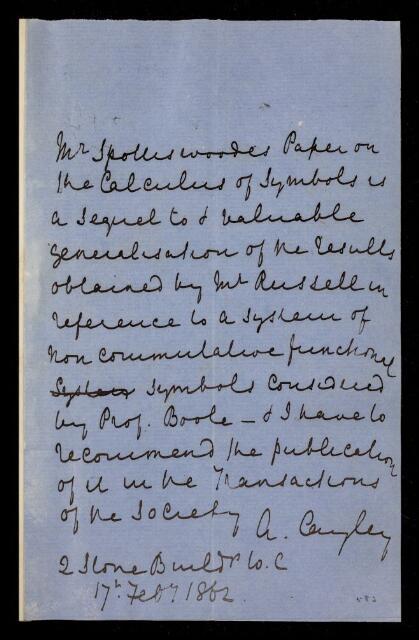 Mr Spottiswoodes Paper on
the Calculus of Symbols is
a sequel to & valuable
generalisation of the results
obtained by Mr Russell in
reference to a system of
non commutative functional
System symbols considered
by Prof. Boole — & I have to
recommend the publication
of it in the Transactions
of the Society
A. Cayley
2 Stone Buildgs W.C
17th Feby 1862